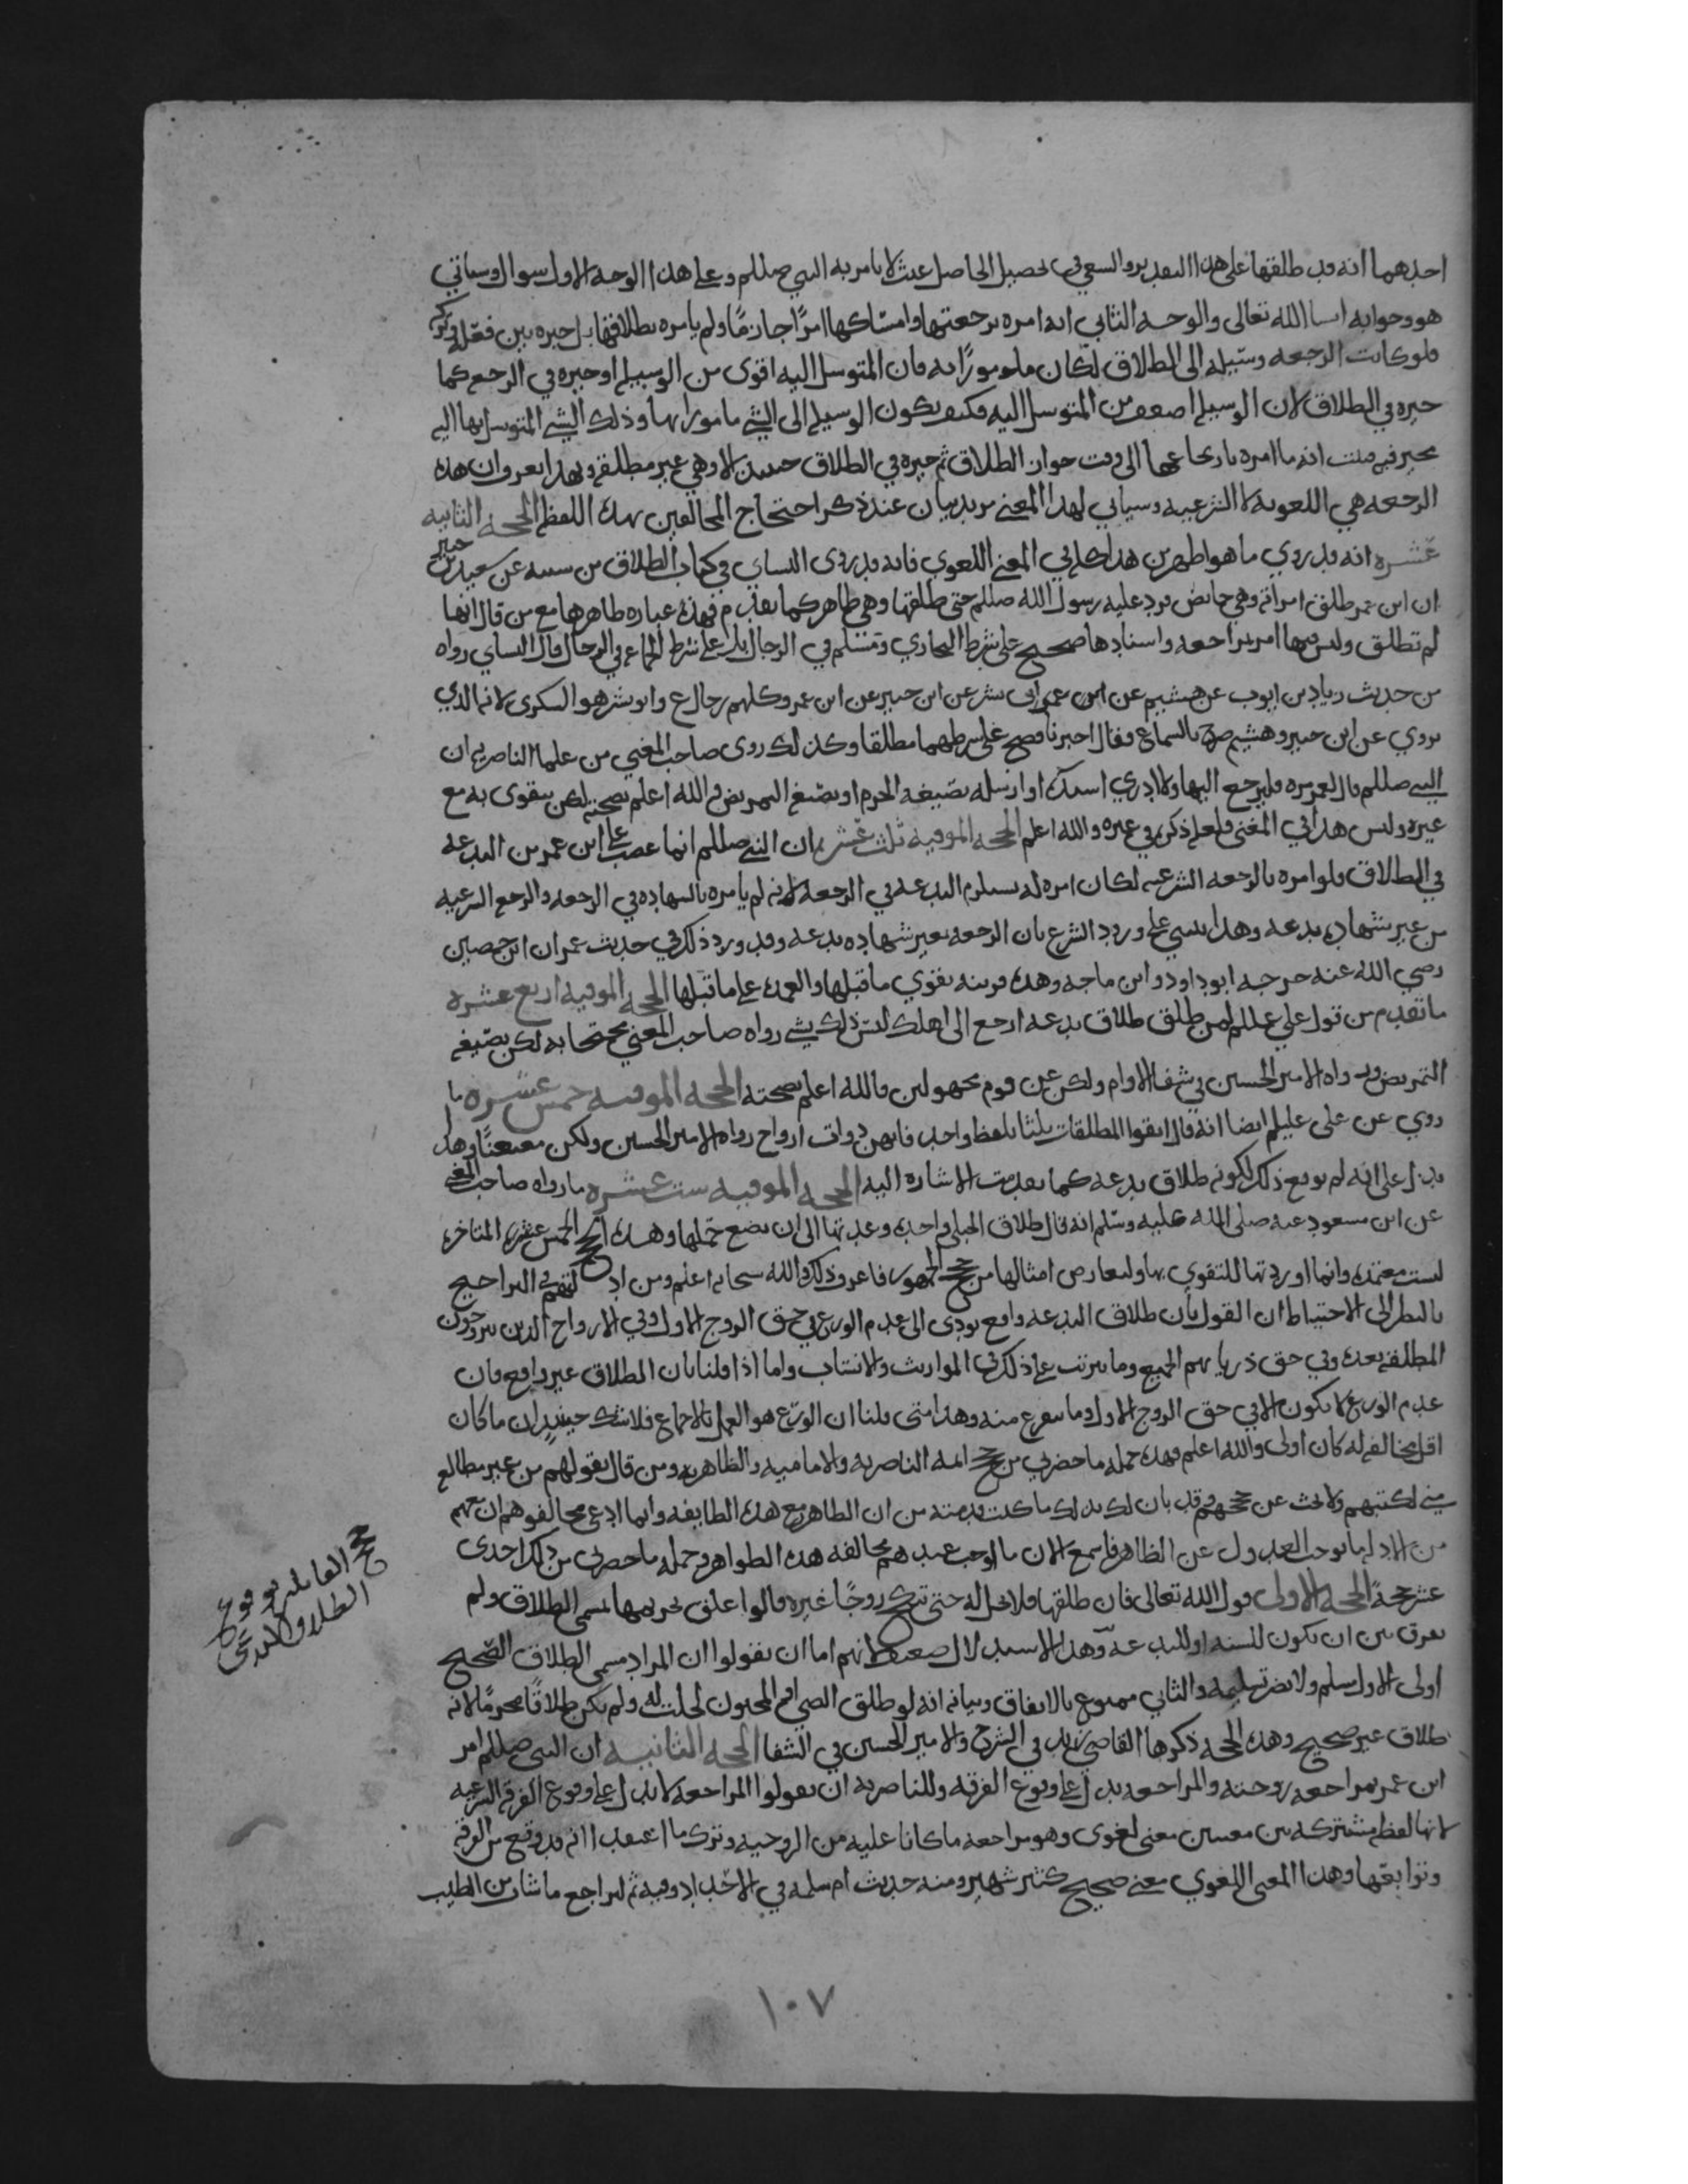 احدهما انه قد طلقها على هذا التقدير والسعي في تحصيل الحاصل عبث لا يامر به النبي صللم وعلى هذا الوجه الاول سوال وسياتي
هو وجوابه ان شا الله تعالى والوجه الثاني انه امره برجعتها وامساكها امرًا جازمًا ولم يامره بطلاقها بل خيره بين فعله وتركه
فلو كانت الرجعه وسيله الى الطلاق لكان مامورًا به فان المتوسل اليه اقوى من الوسيله او خيره في الرجعه كما
خيره في الطلاق لان الوسيله اضعف من المتوسل اليه فكيف تكون الوسيله الى الشي مامورا بها وذلك الشي المتوسل بها اليه
مخير فيه فثبت انه ما امره بارتجاعها الى وقت جواز الطلاق ثم خيره في الطلاق حينئذ الا وهي غير مطلقه وبهذا يعرف ان هذه
الرجعه هي اللغويه لا الشرعيه وسياتي لهذا المعنى مزيد بيان عند ذكر احتجاج المخالفين بهذا اللفظ الحجه الثانيه
عشره انه قد روي ما هو اظهر من هذا كله في المعنى اللغوي فانه قد روى النساي في كتاب الطلاق من سننه عن سعيد بن جبير
ان ابن عمر طلق امراته وهي حايض فرد عليه رسول الله صللم حتى طلقها وهي طاهر كما تقدم فهذه عباره ظاهرها مع من قال انها
لم تطلق وليس فيها امر بمراجعه واسنادها صحيح على شرط البخاري ومسلم في الرجال بل على شرط الجماعه في الرجال قال النساي رواه
من حديث زياد بن ايوب عن هشيم عن ابي بشر عن ابن جبير عن ابن عمر وكلهم رجال ع وابو بشر هو السكري لانه الذي
يروي عن ابن جبير وهشيم صرح بالسماع فقال اخبرنا فصح على شرطهما مطلقا وكذلك روى صاحب المغني من علما الناصريه ان
النبي صللم قال لعمر مره فليرجع اليها ولا ادري اسنده او ارسله بصيغه الجزم او بصيغه التمريض والله اعلم بصحته لكن يتقوى به مع
غيره وليس هذا في المغني فلعله ذكره في غيره والله اعلم الحجه الموفيه ثلث عشره ان النبي صللم انما غضب على ابن عمر من البدعه
في الطلاق فلو امره بالرجعه الشرعيه لكان امره له يستلزم البدعه في الرجعه لانه لم يامره بالشهاده في الرجعه والرجعه الشرعيه
من غير شهاده بدعه وهذا ينبني على ورود الشرع بان الرجعه بغير شهاده بدعه وقد ورد ذلك في حديث عمران ابن حصين
رضي الله عنه خرجه ابو داود وابن ماجه وهذه قرينه تقوي ما قبلها والعمده على ما قبلها الحجه الموفيه اربع عشره
ما تقدم من قول علي عللم لمن طلق طلاق بدعه ارجع الى اهلك ليس ذلك بشي رواه صاحب المغني محتجا به لكن بصيغه
التمريض ورواه الامير الحسين في شفا الاوام ولكن عن قوم مجهولين فالله اعلم بصحته الحجه الموفيه خمس عشره ما
روي عن علي عليلم ايضا انه قال اتقوا المطلقات ثلثا بلفظ واحد فانهن ذوات ازواج رواه الامير الحسين ولكن معنعنًا وهذا
يدل على انه لم يوقع ذلك لكونه طلاق بدعه كما تقدمت الاشاره اليه الحجه الموفيه ست عشره ما رواه صاحب المغني
عن ابن مسعود عنه صلى الله عليه وسلم انه قال طلاق الحبلى واحده وعدتها الى ان تضع حملها وهذه الحجج الخمس عشره المتاخره
ليست معتمده وانما اوردتها للتقوي بها وليعارض امثالها من حجج الجمهور فاعرف ذلك والله سبحانه اعلم ومن ادلتهم في التراجيح
بالنظر الى الاحتياط ان القول بان طلاق البدعه واقع يودى الى عدم الورع في حق الزوج الاول وفي الازواج الذين يتزوجون
المطلقه بعده وفي حق ذرياتهم الجميع وما يترتب على ذلك في المواريث والانساب واما اذا قلنا بان الطلاق غير واقع فان
عدم الورع لا يكون الا في حق الزوج الاول وما يتفرع منه وهذا متى قلنا ان الورع هو العمل بالاجماع فلا شك حينئذ ان ما كان
اقل مخالفه له كان اولى والله اعلم فهذه جمله ما حضرني من حجج ايمه الناصريه والاماميه والظاهريه ومن قال بقولهم من غير مطالعه
مني لكتبهم ولا بحث عن حججهم وقد بان لك بذلك ما كنت قدمته من ان الظاهر مع هذه الطايفه وانما ادعى مخالفوهم ان معهم
من الادله ما يوجب العدول عن الظاهر فاسمع الان ما اوجب عندهم مخالفه هذه الظواهر وجمله ما حضرني من ذلك احدى
عشر حجةً الحجه الاولى قول الله تعالى فان طلقها فلا تحل له حتى تنكح زوجًا غيره قالوا علق تحريمها بمسمى الطلاق ولم
يفرق بين ان يكون للسنه او للبدعه وهذا الاستدلال ضعيف لانهم اما ان يقولوا ان المراد مسمى الطلاق الصحيح
اولى الاول مسلم ولا يضر تسليمه والثاني ممنوع بالاتفاق وبيانه انه لو طلق الصبي او المجنون لحلت له ولم يكن طلاقًا محرمًا لانه
طلاق غير صحيح وهذه الحجه ذكرها القاضي زيد في الشرح والامير الحسين في الشفا الحجه الثانيه ان النبي صللم امر
ابن عمر بمراجعه زوجته والمراجعه تدل على وقوع الفرقه وللناصريه ان يقولوا المراجعه لا تدل على وقوع الفرقه الشرعيه
لانها لفظه مشتركه بين معنيين معنى لغوي وهو مراجعه ما كانا عليه من الزوجيه وترك ما اعتقد انه قد وقع من الفرقه
وتوابعها وهذا المعنى اللغوي معنى صحيح كثير شهير ومنه حديث ام سلمه في الاحداد وفيه ثم تراجع ما شات من الطيب
حجج القايلين بوقوع
الطلاق البدعي
١٠٧